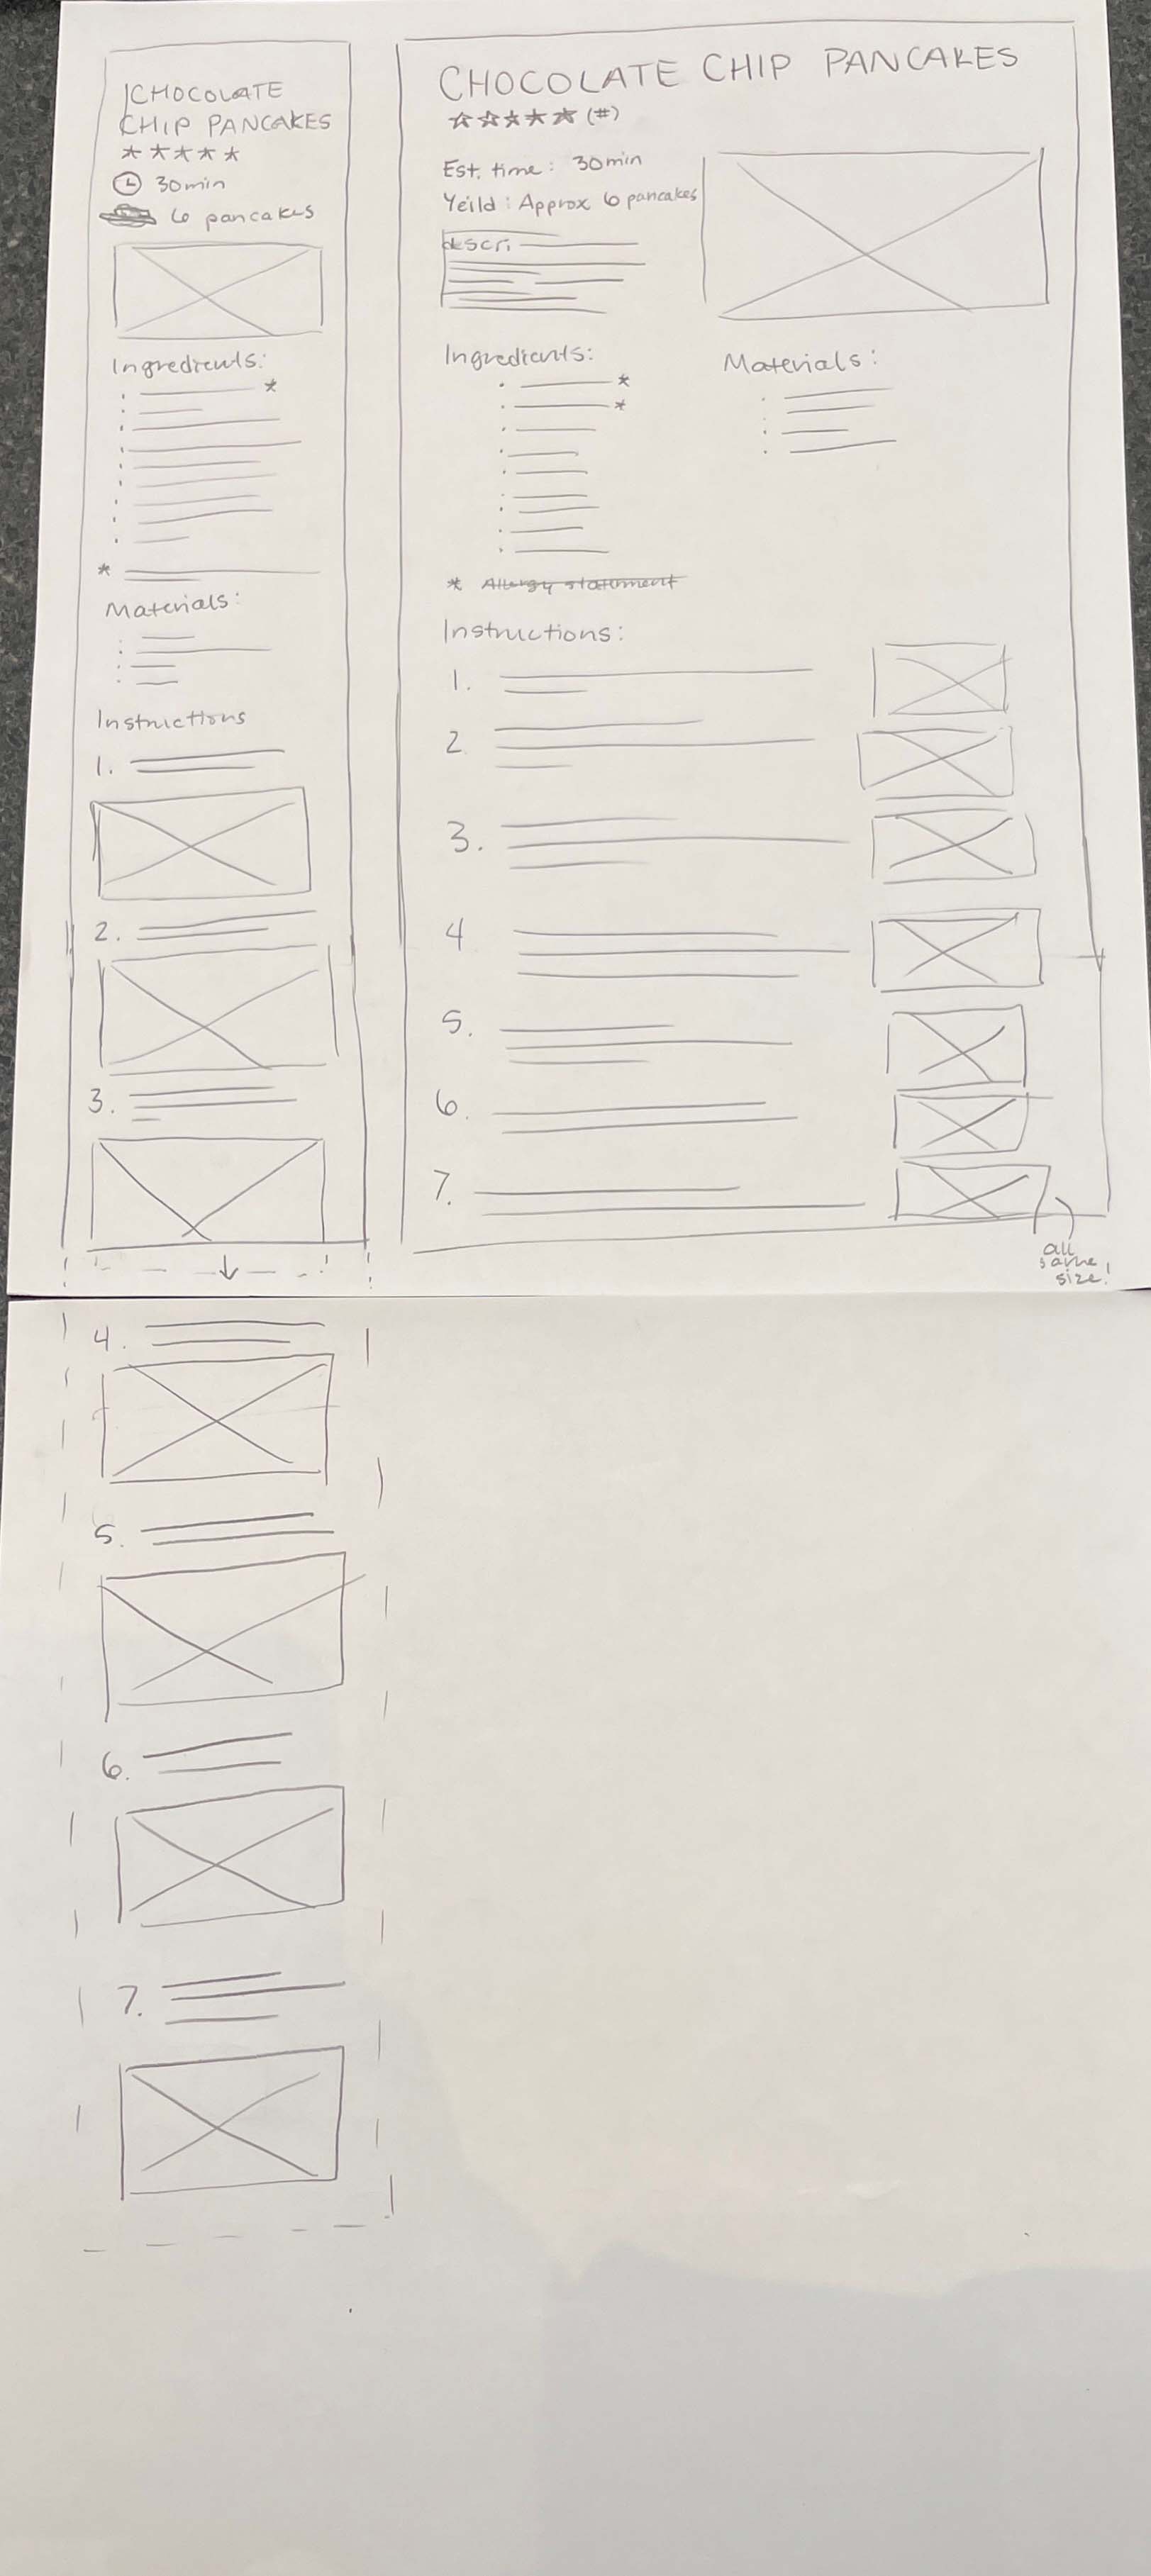 CHOCOLATE
CHIP PANCAKES
30min
6 pancakes
Ingredients:
*
*
Materials:
Instructions
1.
2.
3.
4.
5.
6.
7.
CHOCOLATE CHIP PANCAKES
(#)
Est. time: 30min
Yeild: Approx 6 pancakes
descri
Ingredients:
*
*
* Allergy statement
Materials:
Instructions:
1.
2.
3.
4
5.
6.
7.
all
same
size!